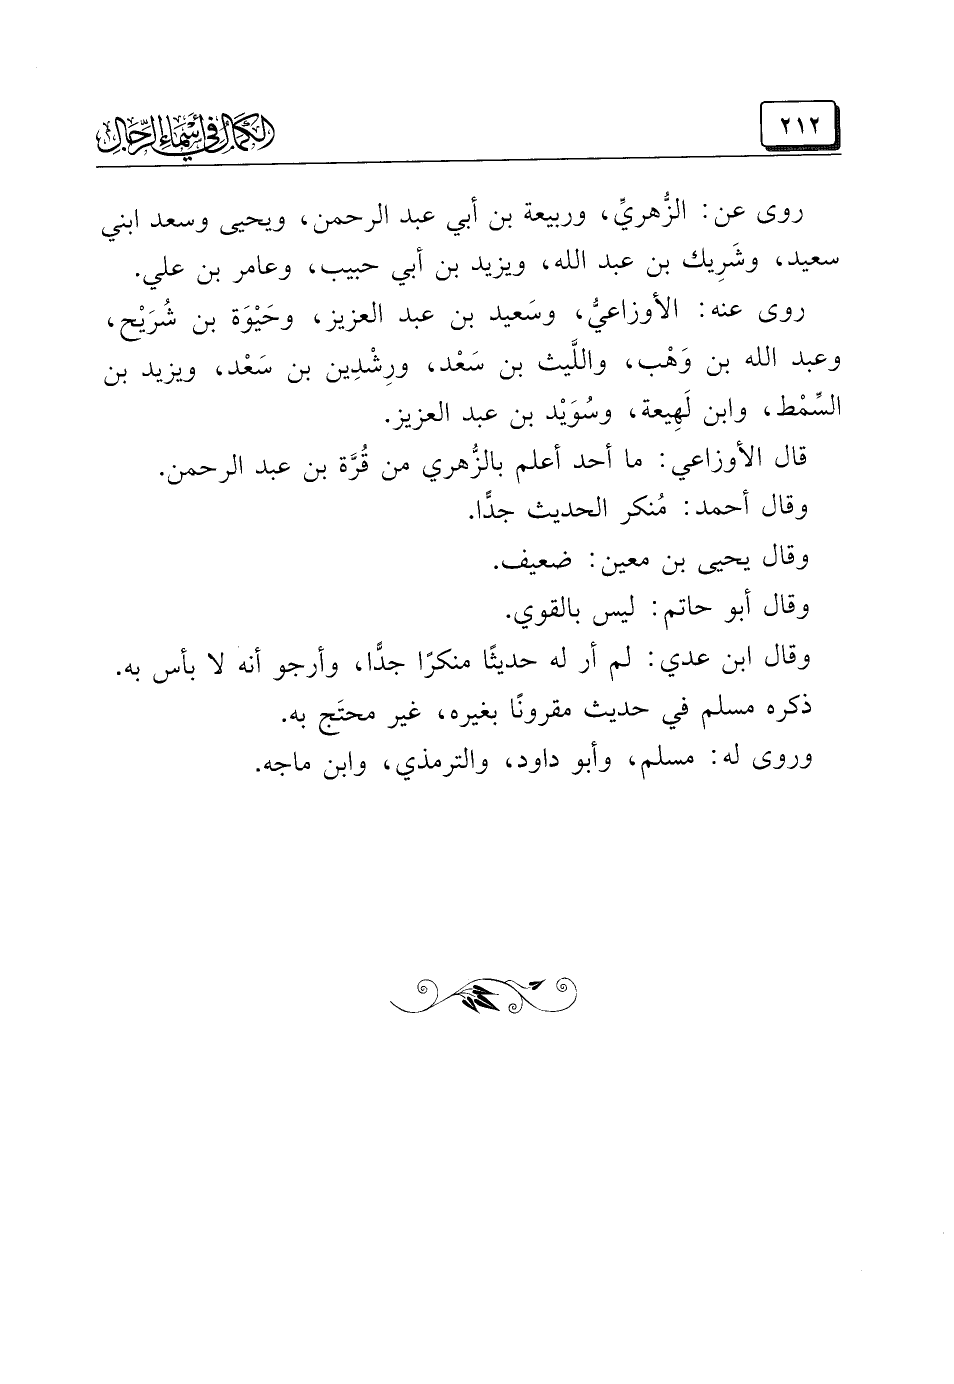 ٢١٢
الكمال في أسماء الرجال
روى عن: الزُّهريِّ، وربيعة بن أبي عبد الرحمن، ويحيى وسعد ابني
سعيد، وشَرِيك بن عبد الله، ويزيد بن أبي حبيب، وعامر بن علي.
روى عنه: الأوزاعيُّ، وسَعيد بن عبد العزيز، وحَيْوَة بن شُرَيْح،
وعبد الله بن وَهْب، واللَّيث بن سَعْد، ورِشْدِين بن سَعْد، ويزيد بن
السِّمْط، وابن لَهِيعة، وسُوَيْد بن عبد العزيز.
قال الأوزاعي: ما أحد أعلم بالزُّهري من قُرَّة بن عبد الرحمن.
وقال أحمد: مُنكر الحديث جدًّا.
وقال يحيى بن معين: ضعيف.
وقال أبو حاتم: ليس بالقوي.
وقال ابن عدي: لم أر له حديثًا منكرًا جدًّا، وأرجو أنه لا بأس به.
ذكره مسلم في حديث مقرونًا بغيره، غير محتَج به.
وروى له: مسلم، وأبو داود، والترمذي، وابن ماجه.